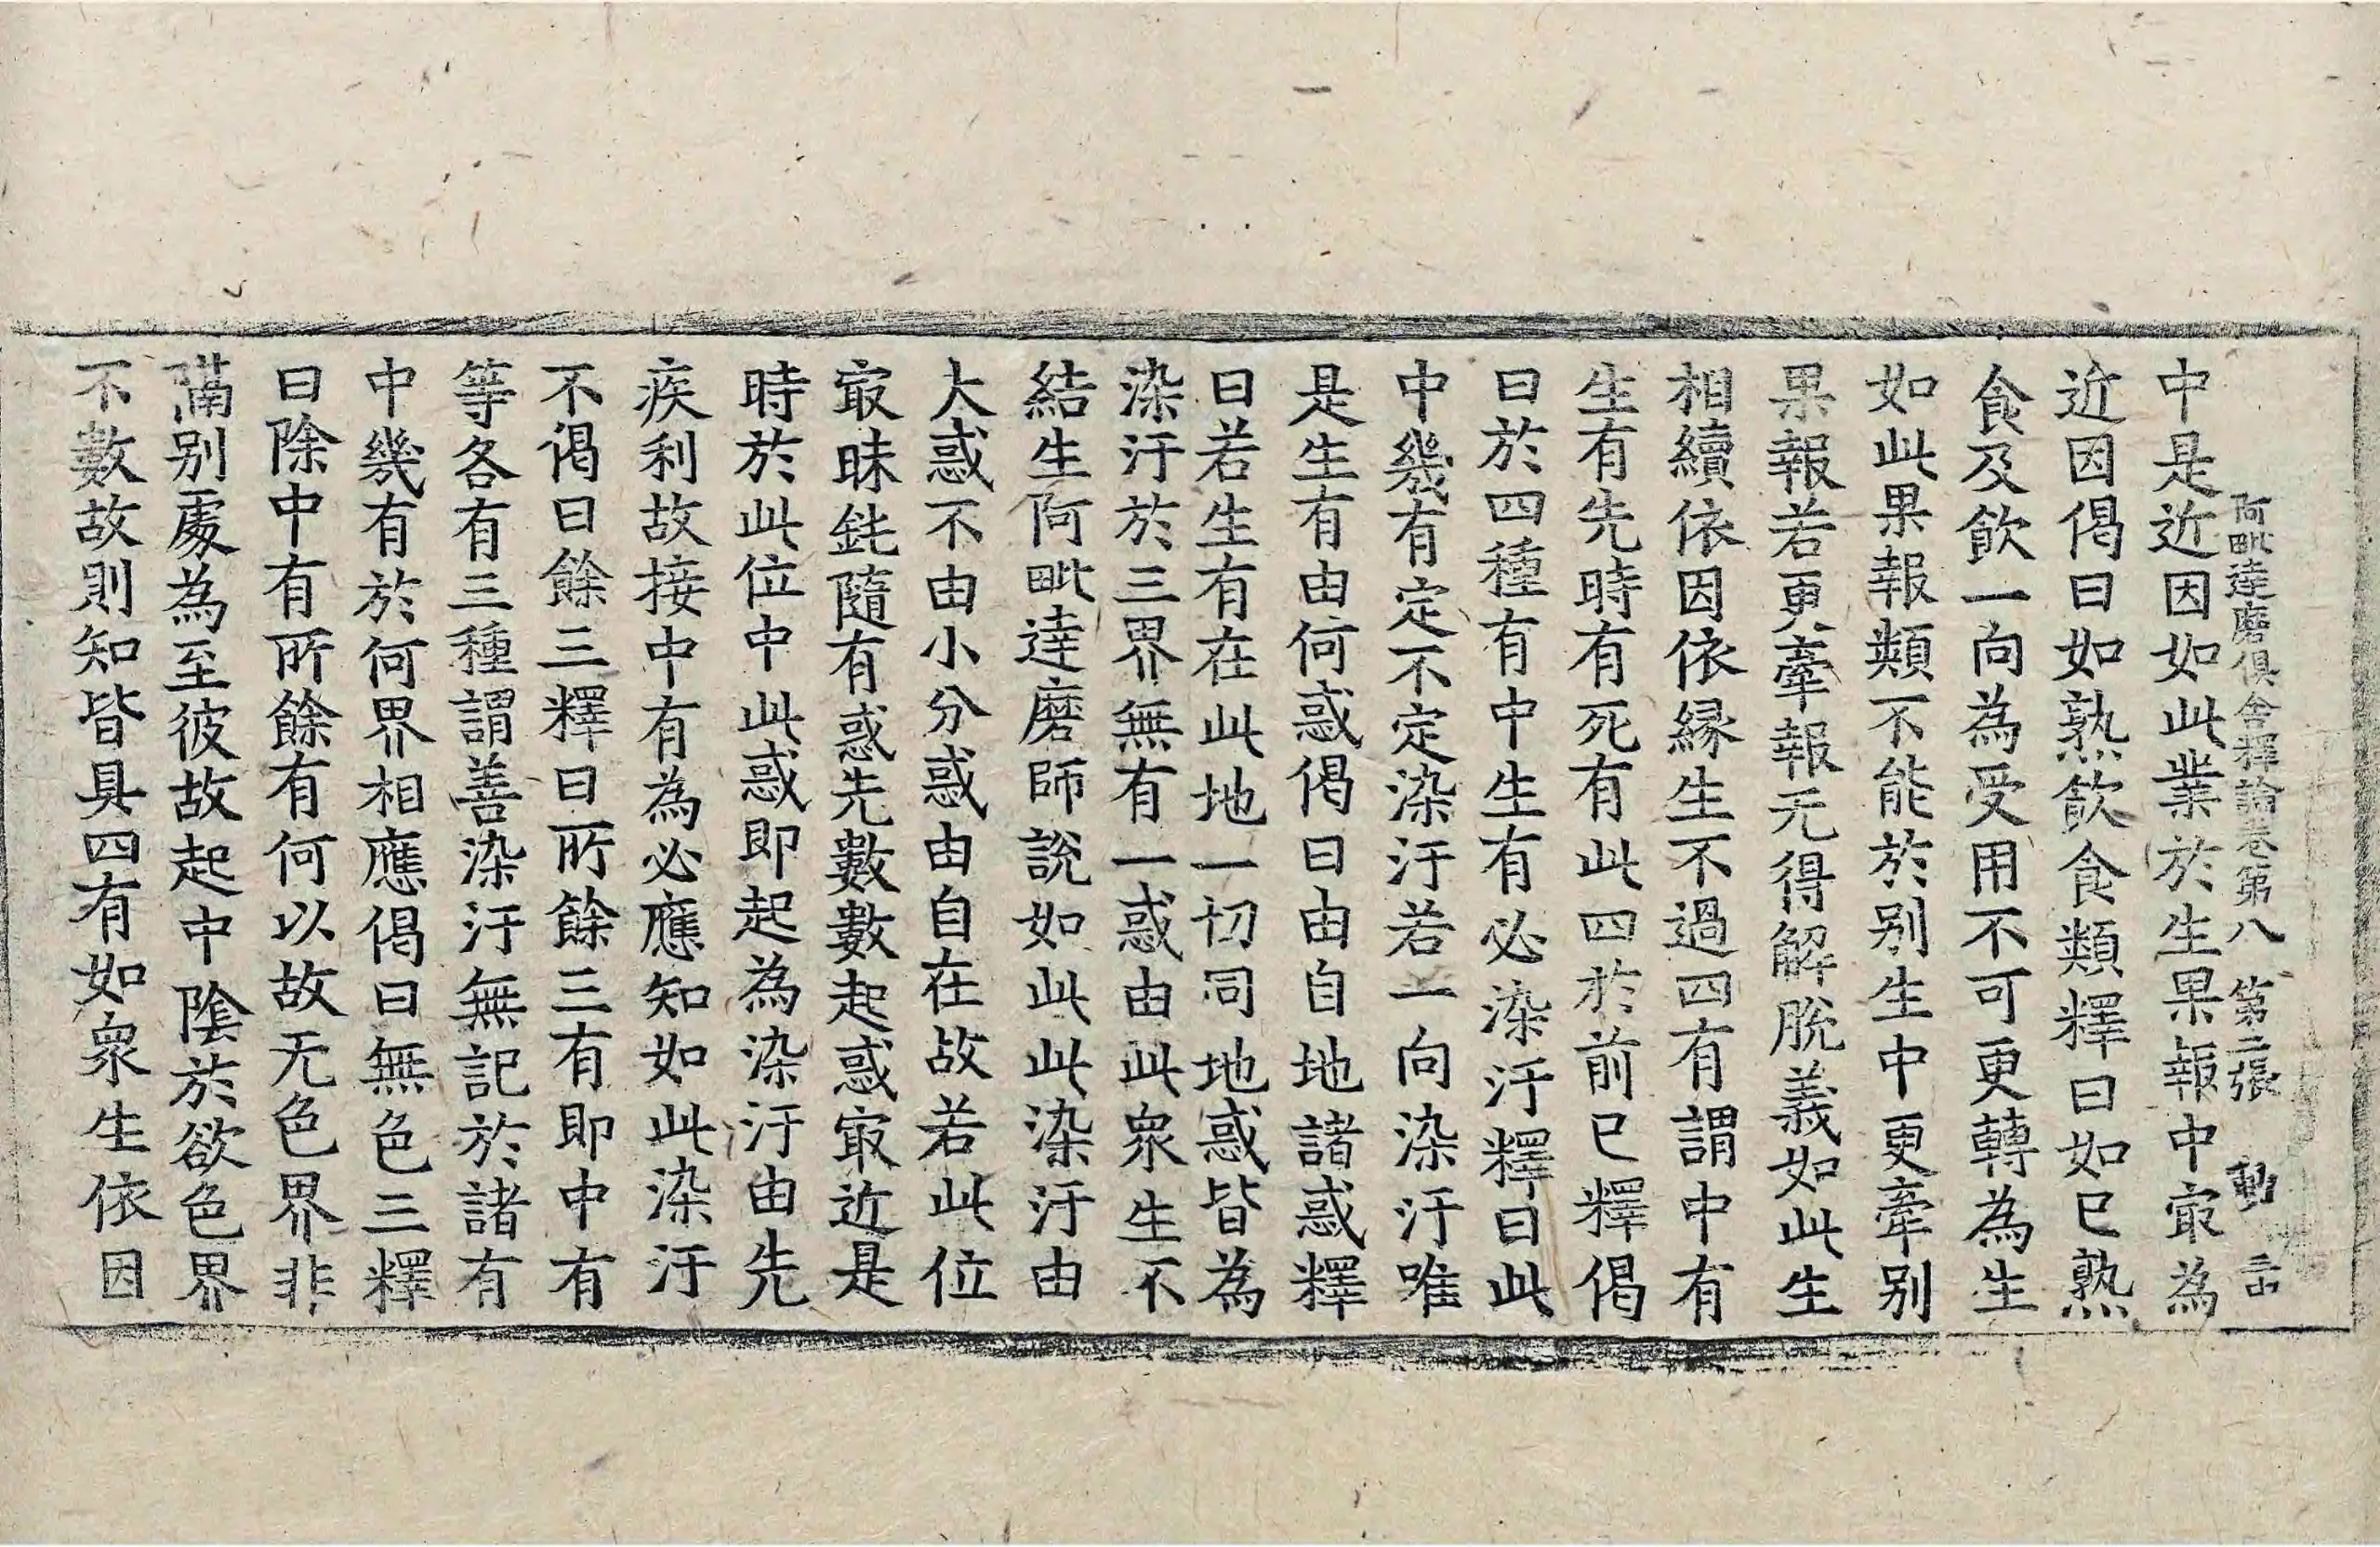 阿毗達磨俱舍釋論卷第八 第二張 動
中是近因如此業於生果報中㝡為
近因偈曰如熟飲食類釋曰如已熟
食及飲一向為受用不可更轉為生
如此果報類不能於别生中更牽别
果報若更牽報无得解脫義如此生
相續依因依緣生不過四有謂中有
生有先時有死有此四於前已釋偈
曰於四種有中生有必染汙釋曰此
中幾有定不定染汙若一向染汙唯
是生有由何惑偈曰由自地諸惑釋
曰若生有在此地一切同地惑皆為
染汙於三界無有一惑由此衆生不
結生阿毗達磨師說如此此染汙由
大惑不由小分惑由自在故若此位
㝡昧鈍隨有惑先數數起惑㝡近是
時於此位中此惑即起為染汙由先
疾利故接中有為必應知如此染汙
不偈曰餘三釋曰所餘三有即中有
等各有三種謂善染汙無記於諸有
中幾有於何界相應偈曰無色三釋
曰除中有所餘有何以故无色界非
隔别處為至彼故起中陰於欲色界
不數故則知皆具四有如衆生依因